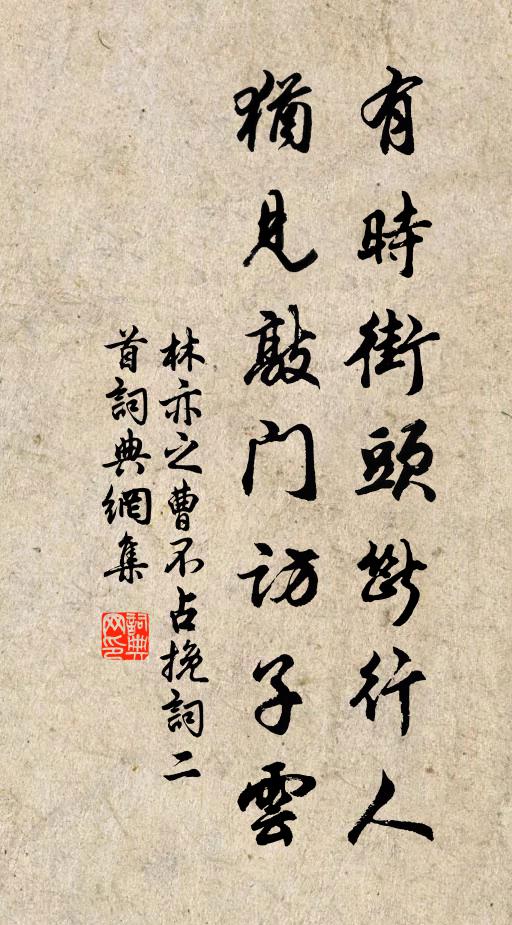 有時街頭斷行人
猶見敲门訪子雲
林亦之曹不占挽詞二
首詞典網集
詞典网印